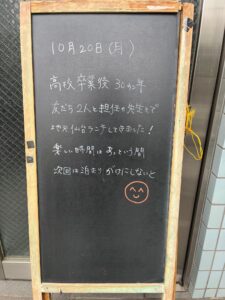 10月20日(月)
高校卒業後 30か年
友だち2人と担任の先生とで
地元仙台ランチしてきました!
楽しい時間はあっという間
次回は泊まりがけにしないと